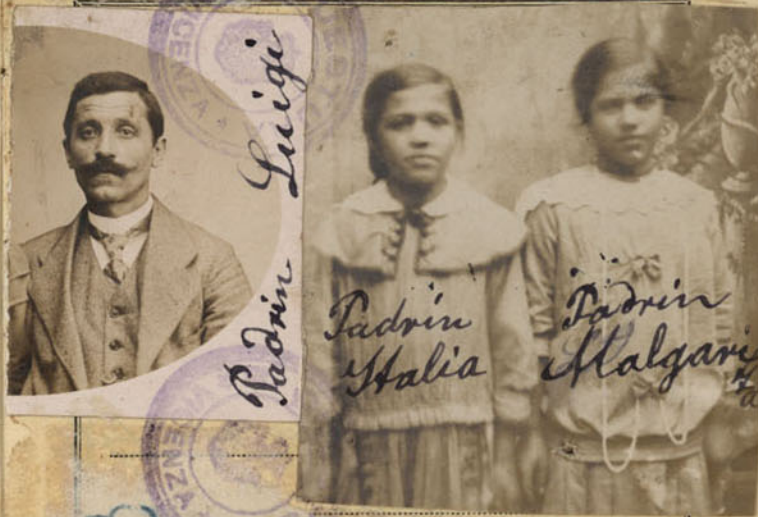 Padrin Luigi
Padrin
Italia
Padrin
Malgari
ta
VICENZA
VICENZA